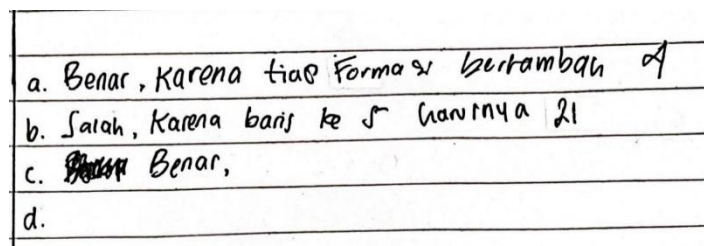 a. Benar, Karena tiap Formasi bertambah 4
b. Salah, Karena baris ke 5 harusnya 21
c. Benar,
d.